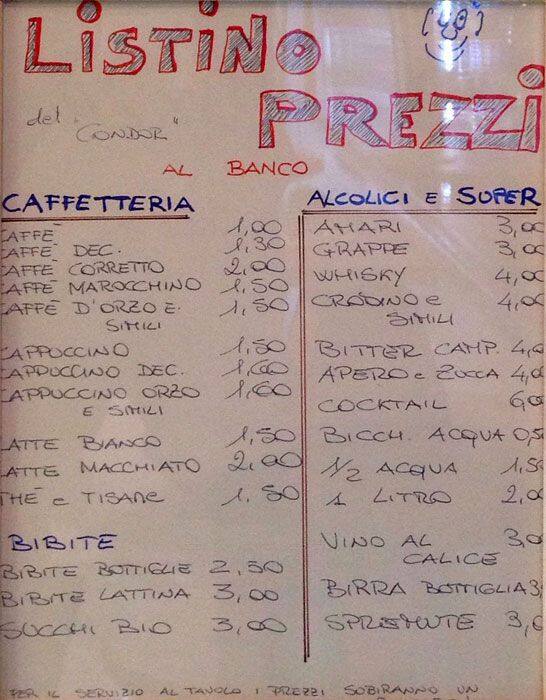 LISTINO
PREZZI
del "CONDOR"
AL BANCO
CAFFETTERIA
AFFÈ 1,00
AFFÈ DEC. 1,30
AFFÈ CORRETTO 2,00
AFFÈ MAROCCHINO 1,50
AFFÈ D'ORZO E 1,50
SIMILI
CAPPUCCINO 1,50
CAPPUCCINO DEC. 1,60
CAPPUCCINO ORZO 1,60
E SIMILI
LATTE BIANCO 1,50
LATTE MACCHIATO 2,00
THÉ e TISANE 1,50
BIBITE
BIBITE BOTTIGLIE 2,50
BIBITE LATTINA 3,00
SUCCHI BIO 3,00
ALCOLICI E SUPER
AMARI 3,00
GRAPPE 3,00
WHISKY 4,00
CRODINO e 4,00
SIMILI
BITTER CAMP. 4,0
APERO e ZUCCA 4,0
COCKTAIL 6,00
BICCH. ACQUA 0,5
1/2 ACQUA 1,5
1 LITRO 2,0
VINO AL 3,0
CALICE
BIRRA BOTTIGLIA 3,
SPREMUTE 3,
PER IL SERVIZIO AL TAVOLO I PREZZI SUBIRANNO UN